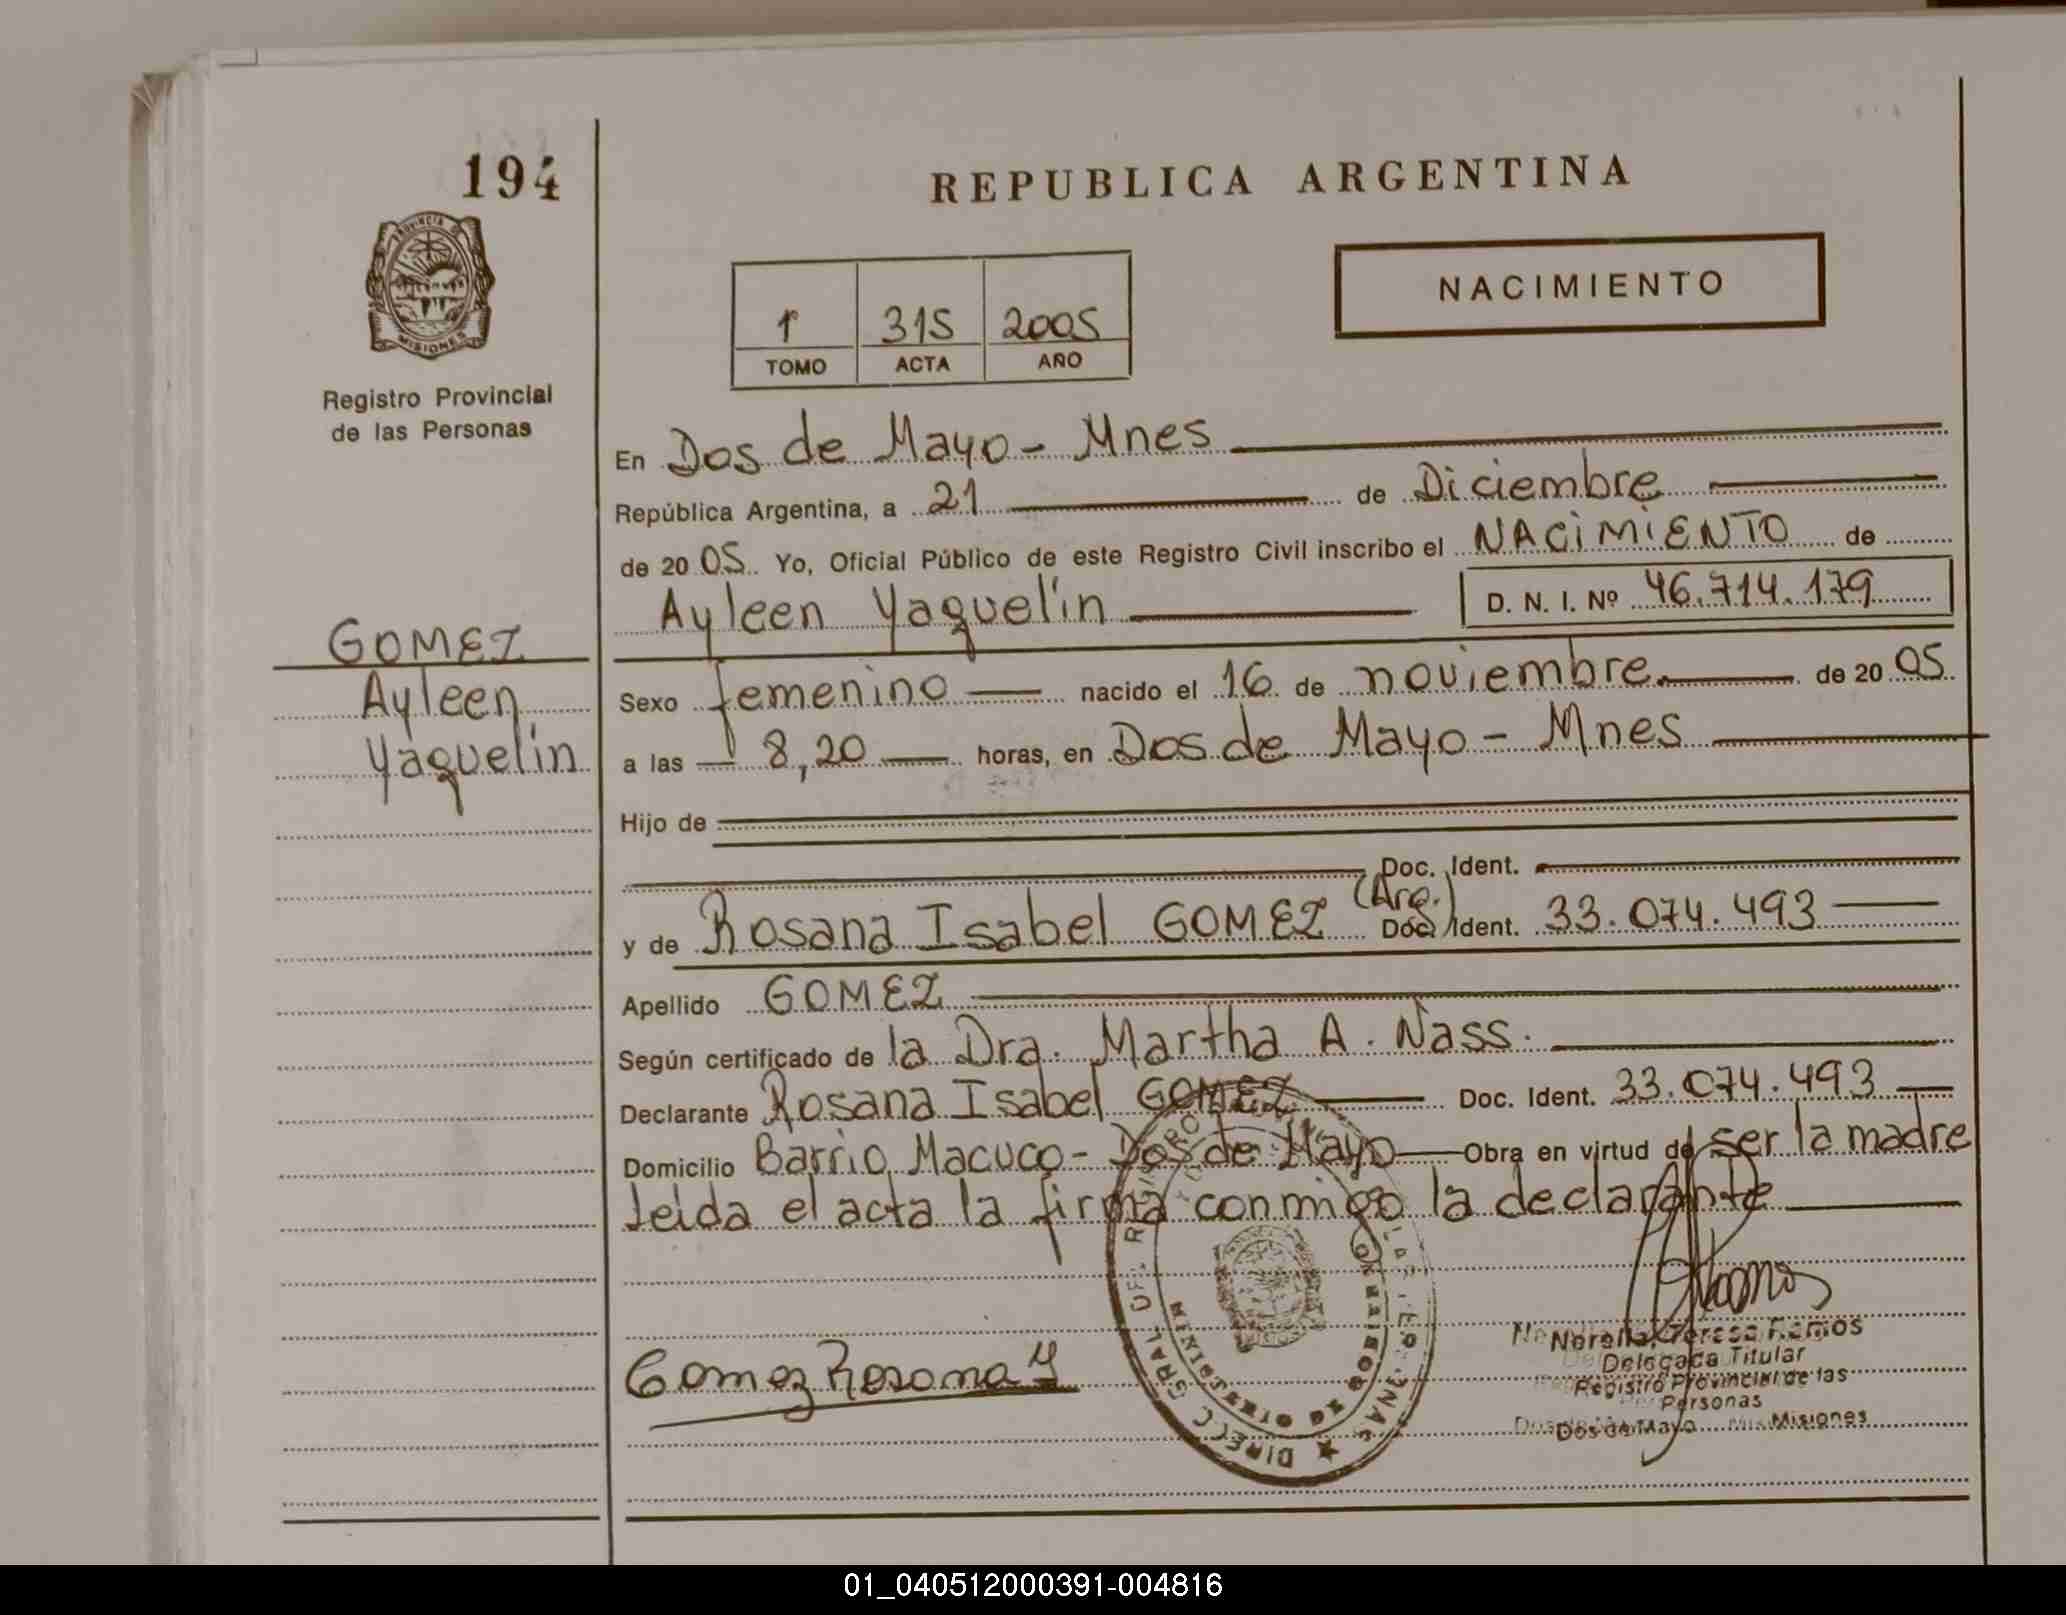 194
REPUBLICA ARGENTINA
NACIMIENTO
PROVINCIA D
MISIONES
1º 315 2005
TOMO ACTA AÑO
Registro Provincial
de las Personas
En Dos de Mayo - Mnes
República Argentina, a 21 de Diciembre
de 20 05. Yo, Oficial Público de este Registro Civil inscribo el NACIMIENTO de
Ayleen Yaquelin D. N. I. Nº 46.714.179
GOMEZ
Ayleen
Yaquelin
Sexo femenino nacido el 16 de noviembre de 20 05
a las 8,20 horas, en Dos de Mayo - Mnes
Hijo de
Doc. Ident.
y de Rosana Isabel GOMEZ (Arg.) Doc. Ident. 33.074.493
Apellido GOMEZ
Según certificado de la Dra. Martha A. Nass.
Declarante Rosana Isabel GOMEZ Doc. Ident. 33.074.493
Domicilio Barrio Macuco - Dos de Mayo Obra en virtud de ser la madre
leida el acta la firma conmigo la declarante
Gomez Rosana Y
Ramos
Norelia Teresa Ramos
Delegada Titular
Registro Provincial de las
Personas
Dos de Mayo Misiones
DIREC. GRAL.
01_040512000391-004816